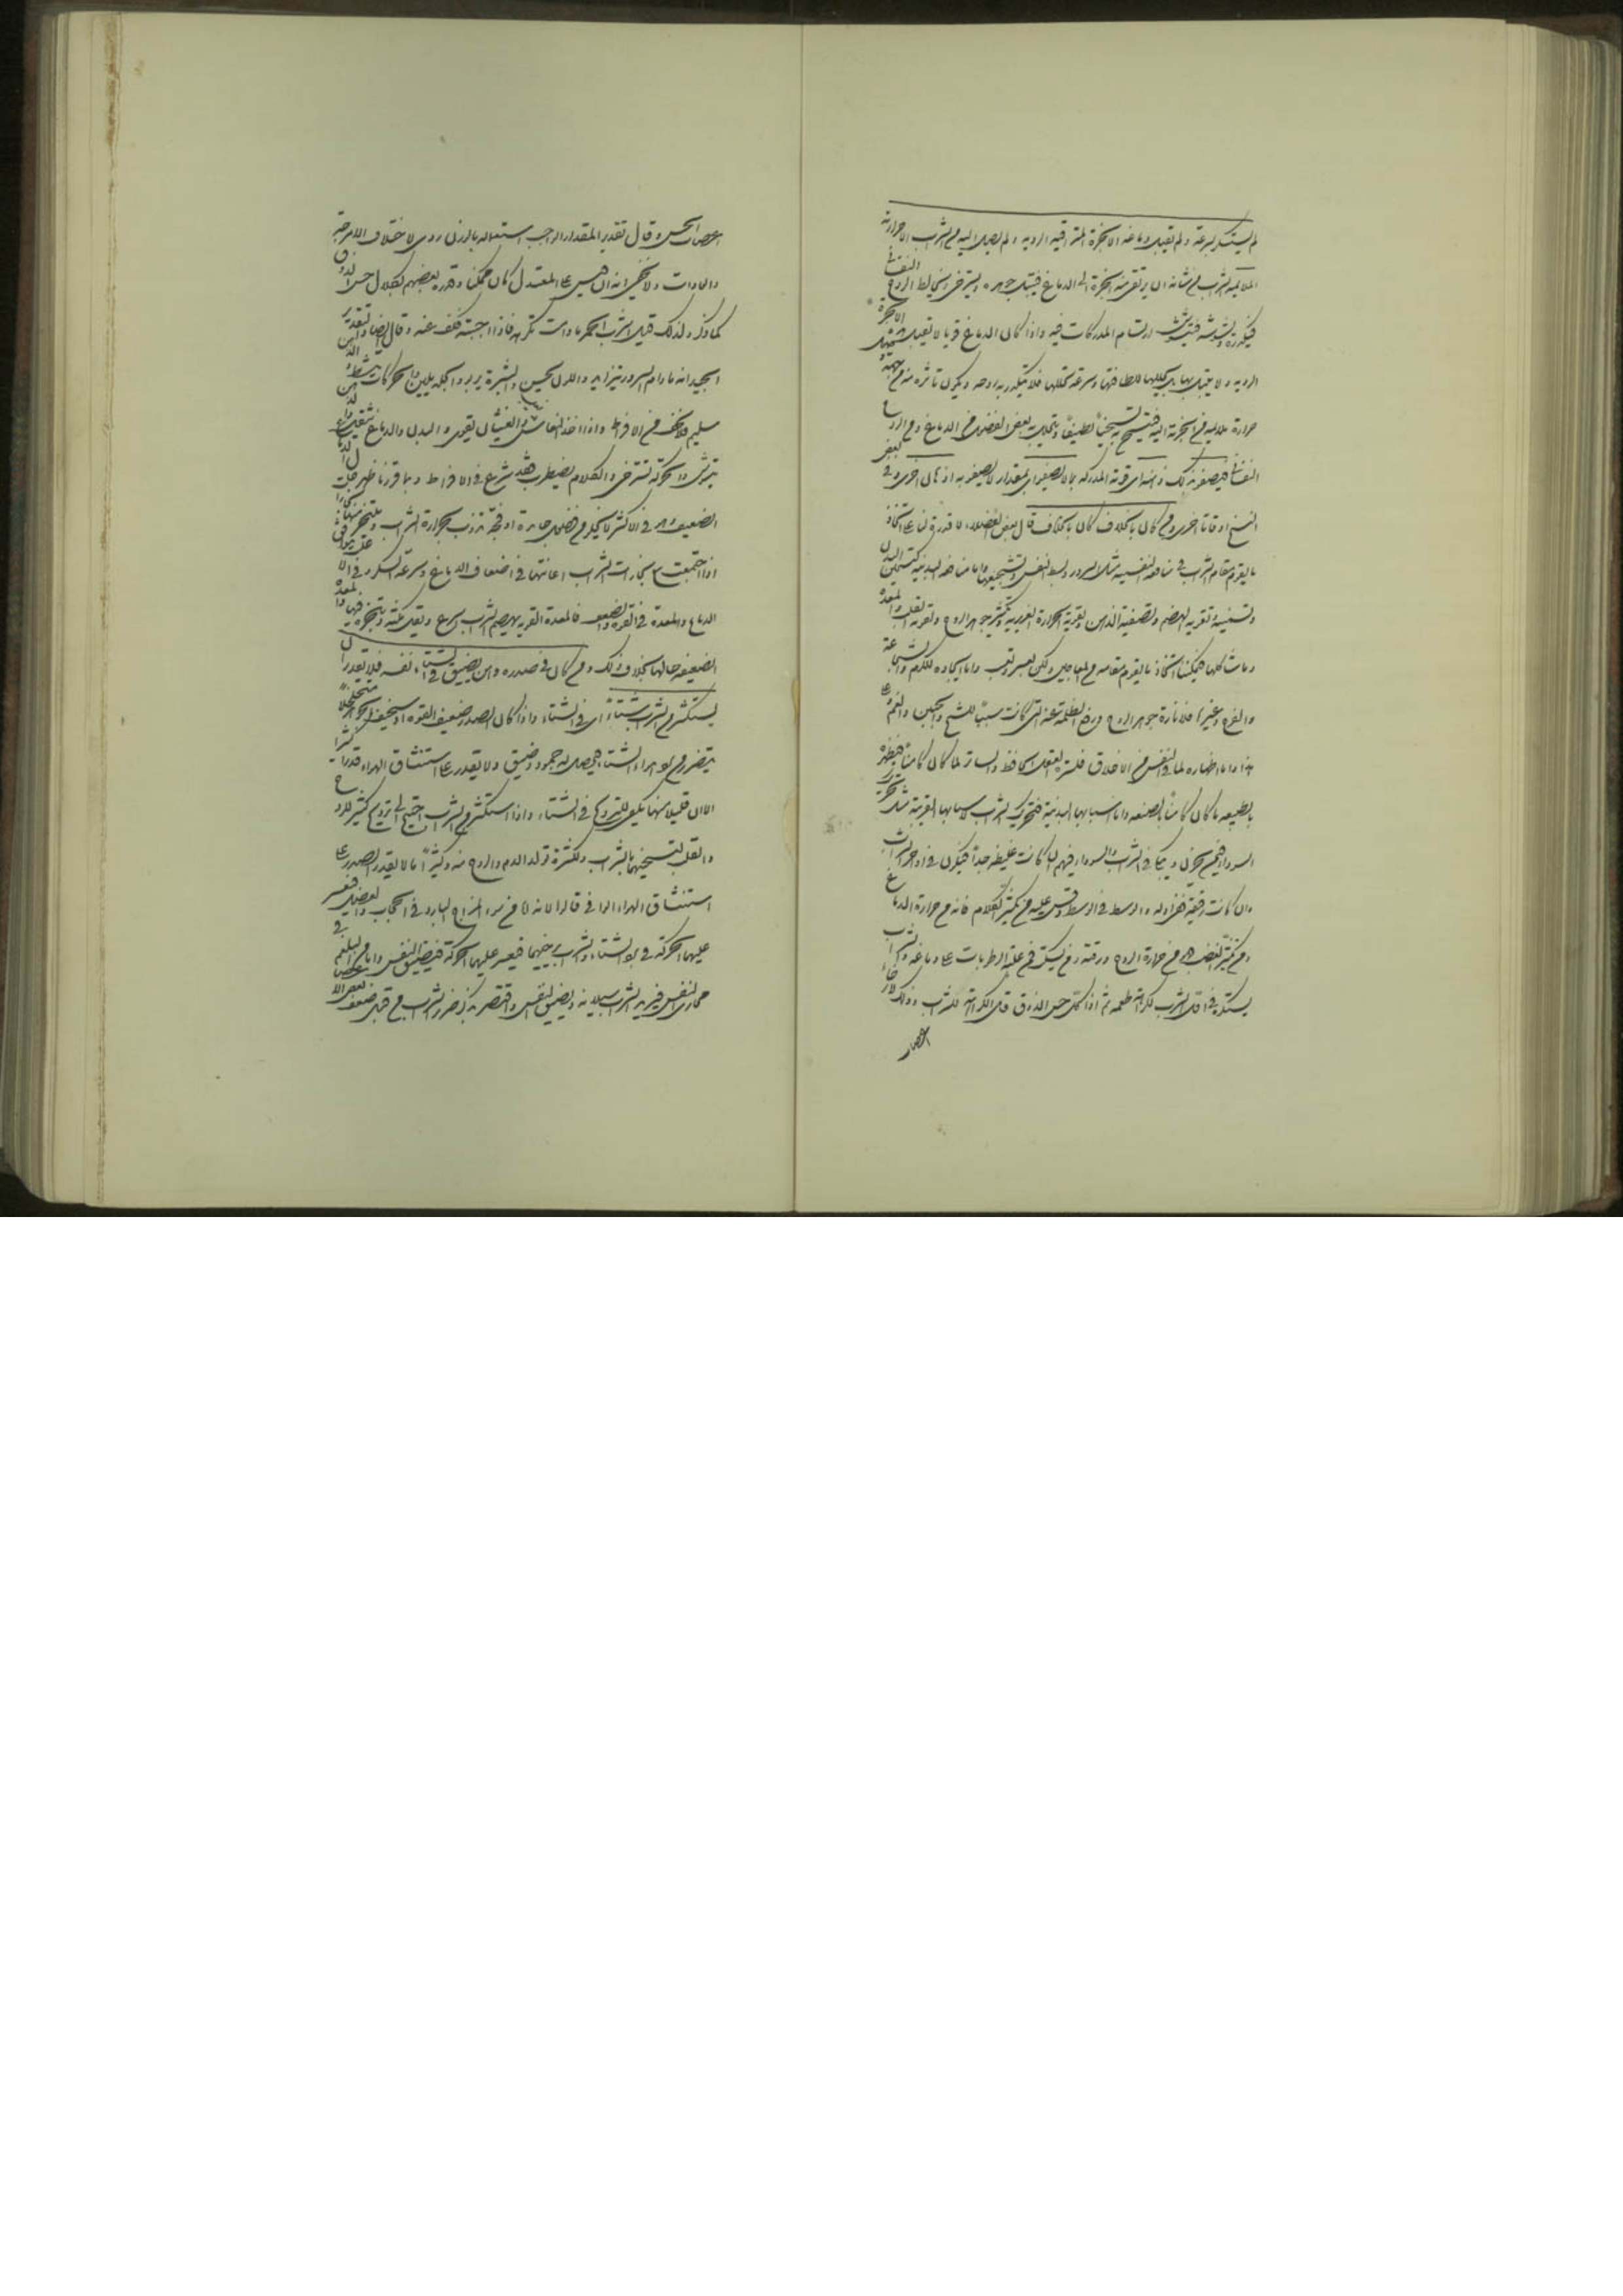 لم يسكر بسرعة ولم تقبل دماغه الابخرة المتراقية الردية ولم يصل اليه من الشراب الا حرارته
الملايمة الشراب من شانه ان يرتقي منه ابخرة الى الدماغ فيقبل جوهره ويسترخي ويخالط الروح النفساني
فيكدره ويشوشه فيتشوش ارتسام المدركات فيه واذا كان الدماغ قويا لا تقبل الابخرة
الردية ولا يقبل بها بل يحللها للطافتها وسرعة تحللها فلا يتكدر به روحه ويكون تاثره من جهة
حرارة ملايمة من ابخرته اليه فيسخن به تسخينا لطيفا ويتحلل بعض الفضول من الدماغ ومن الروح
النفساني فيصفو ذلك ذهنه اى قوته المدركة ما لا يصفو اى بمقدار لا يصفو به اذهان اخرى وفي بعض
النسخ اوقاتا اخرى ومن كان بالخلاف كان بالخلاف قال بعض الفضلاء لا قدرة لنا على اتخاذ
ما يقوم مقام الشراب في منافعه النفسية مثل السرور وبسط النفس وتشجيعها واما منافعه البدنية كتسمين البدن
وتسخينه وتقوية الهضم وتصفية الذهن وتقوية الحرارة الغريزية وتكثير جوهر الروح وتقوية القلب والمعدة
وما شاكلها فيمكننا اتخاذ ما يقوم مقامه من المعاجين ولكن بعسر وتعب واما ايجاده للكرم والشجاعة
والفرح وغيرها فلانارة جوهر الروح ورفع الظلمة عنه التي كانت سببا للشح والجبن والغم
هذا واما اظهاره لما في النفس من الاخلاق فلستره العقل الحافظ والساتر لما كان كامنا فيظهر
بالطبيعة ما كان كامنا بالصنعة واما اسبابها البدنية فتحريك الشراب لاسبابها القريبة مثل تحريك
السوداء فمن يحزن ويبكي في الشراب والسوداء فيهم ان كانت غليظة جدا فيكون في اواخر الشراب
وان كانت رقيقة ففي اوله والوسط في الوسط وقس عليه من يكثر الكلام فانه من حرارة الدماغ
ومن يكثر الغضب من حرارة الروح ورقته ومن يسكن فمن غلبة الرطوبات على دماغه والشراب
يستكره في اول الشرب لكراهة طعمه ثم اذا كل حس الذوق قلت الكراهة للشراب وذلك لارخاء
اعصاب
اعصاب الحس وقال تقدير المقدار الواجب استعماله بالوزن ردى لاختلاف الامزجة
والعادات ولا يخفى انه ان قيس على المعتدل كان ممكنا وقدره بعضهم بكلال حس الذوق
كما ذكر ولذلك قيل الشراب احكم ما دامت تكرهه فاذا احببته فكف عنه وقال ايضا والتقدير
الجيد انه ما دام السرور يتزايد واللون يحسن والبشرة تربو والجلد يلين والحركات نشطة والذهن
سليم فلا تخف من الافراط واذا اخذ النعاس والغثيان يقوى والبدن والدماغ يثقل والذهن
يتشوش والحركة تسترخي والكلام يضطرب فقد شرع في الافراط
الضعيف في الاكثر لا يخلو من فضول حارة او فجة تذوب بحرارة الشراب وتتبخر
اذا اجتمعت مع بخارات الشراب اعانتها في اضعاف الدماغ وسرعة السكر
الدماغ والمعدة في القوة والضعف فالمعدة القوية يهضم الشراب اسرع ويقل مكثه وتبخره فيها والمعدة
الضعيفة حالها بخلاف ذلك ومن كان في صدره وهن يضيق في الشتاء نفسه فلا يقدر ان
يستكثر من الشراب شتاء اى في الشتاء واذا كان الصدر ضعيف القوة او سخيف الجوهر متخلخلا
يتضرر من برد هواء الشتاء فيحصل له جمود وضيق ولا يقدر على استنشاق الهواء قدرا كثيرا
الا ان قليلا منها يكفي للترويح في الشتاء واذا استكثر من الشراب احتيج الى ترويح كثير للروح
والقلب لتسخينهما بالشراب ولكثرة تولد الدم والروح منه وكثيرا ما لا يقدر الصدر على
استنشاق الهواء الوافي قالوا لانه لا من سوء المزاج البارد في الحجاب والعضل فيعسر
عليهما الحركة في برد الشتاء والشراب يرخيهما فيعسر عليهما الحركة فيضيق النفس واما من البلغم في
مجارى النفس فيزيد الشراب سيلانه ويضيق النفس